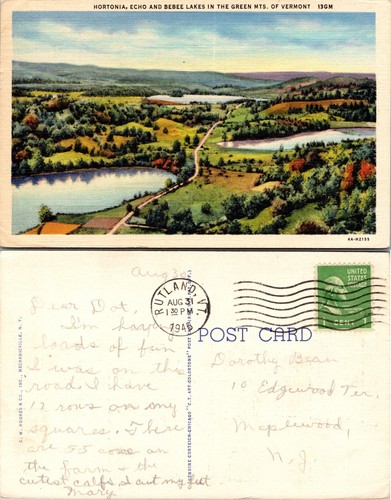 HORTONIA, ECHO AND BEBEE LAKES IN THE GREEN MTS. OF VERMONT 13GM
4A-H2155
Aug 30
RUTLAND, VT.
AUG 31
1 30 PM
194
UNITED STATES
1 CENT 1
POST CARD
Dear Dot,
I'm having
loads of fun
I was on the
road. I have
12 rows on my
squares. There
are 55 cows on
the farm & the
cutest calfs
Mary
Dorothy Bean
10 Edgewood Ter.
Maplewood,
N. J.
GENUINE CURTEICH-CHICAGO "C.T. ART-COLORTONE" POST CARD